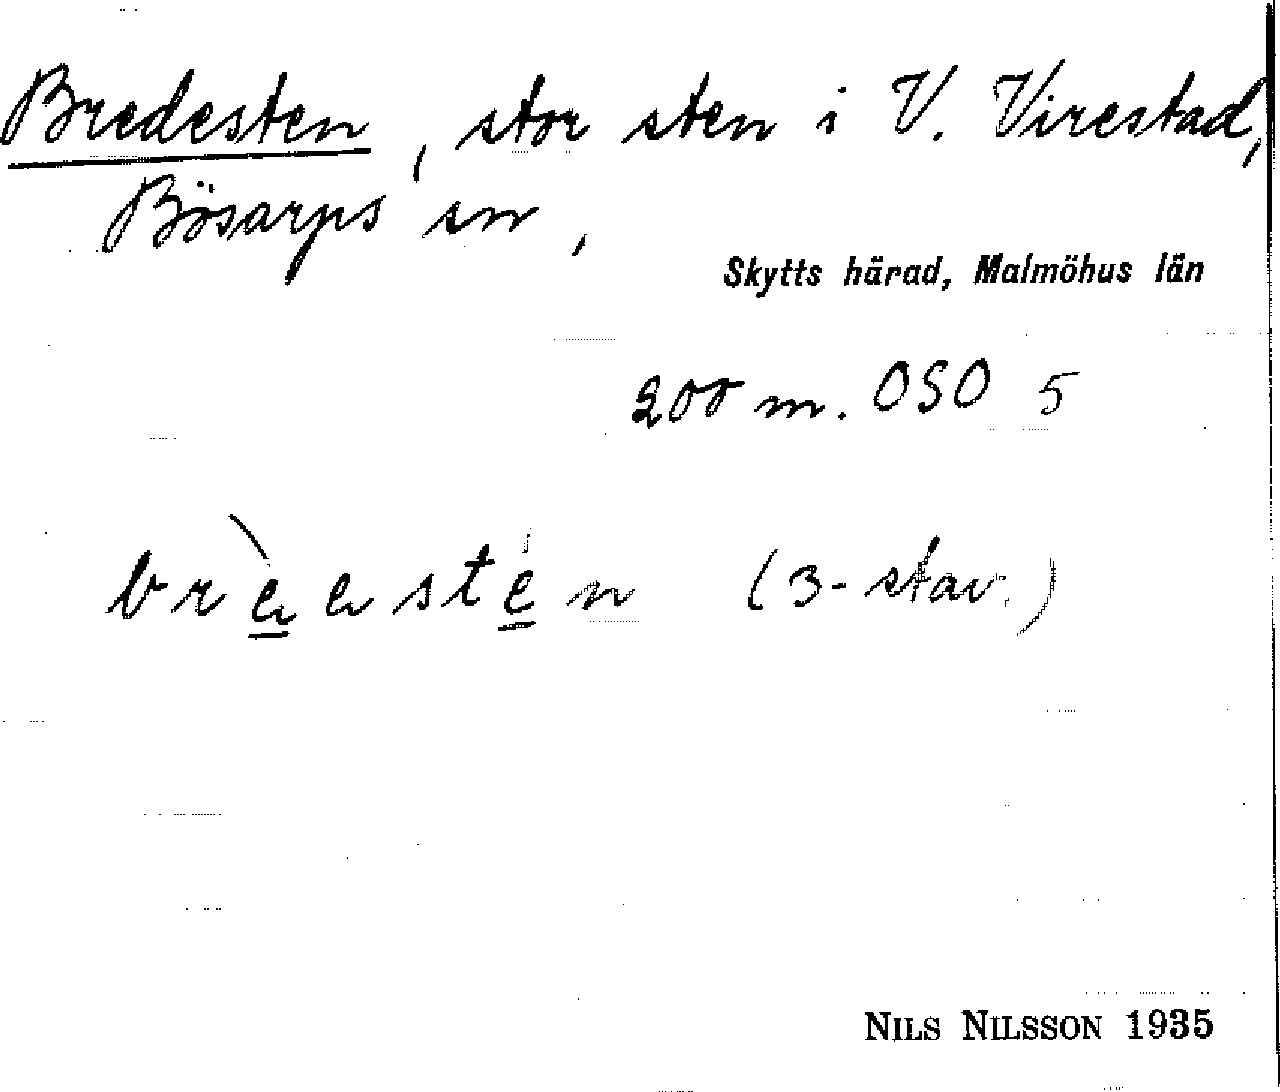 Bredesten, stor sten i V. Virestad,
Bösarps sn,
Skytts härad, Malmöhus län
200 m. OSO 5
brèestén (3-stav.)
NILS NILSSON 1935